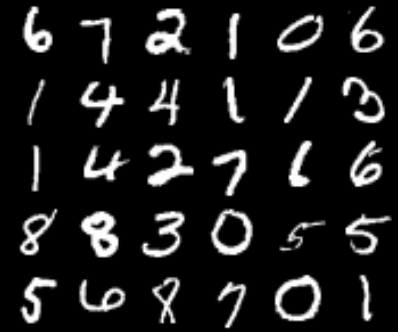 6 7 2 1 0 6
1 4 4 1 1 3
1 4 2 7 6 6
8 8 3 0 5 5
5 6 8 7 0 1